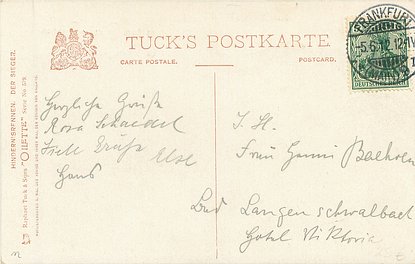 TUCK'S POSTKARTE.
CARTE POSTALE.
POSTCARD.
FRANKFURT
5.6.12.12-1V
DEUTSCHES REICH
HINDERNISRENNEN. DER SIEGER.
Raphael Tuck & Sons "OILETTE" Serie No. 579.
Herzliche Grüße
Rosa Schaedel
Viele Grüße Else
Hans
I. H.
Frau Henni
Bad Langenschwalbach
Hotel Viktoria